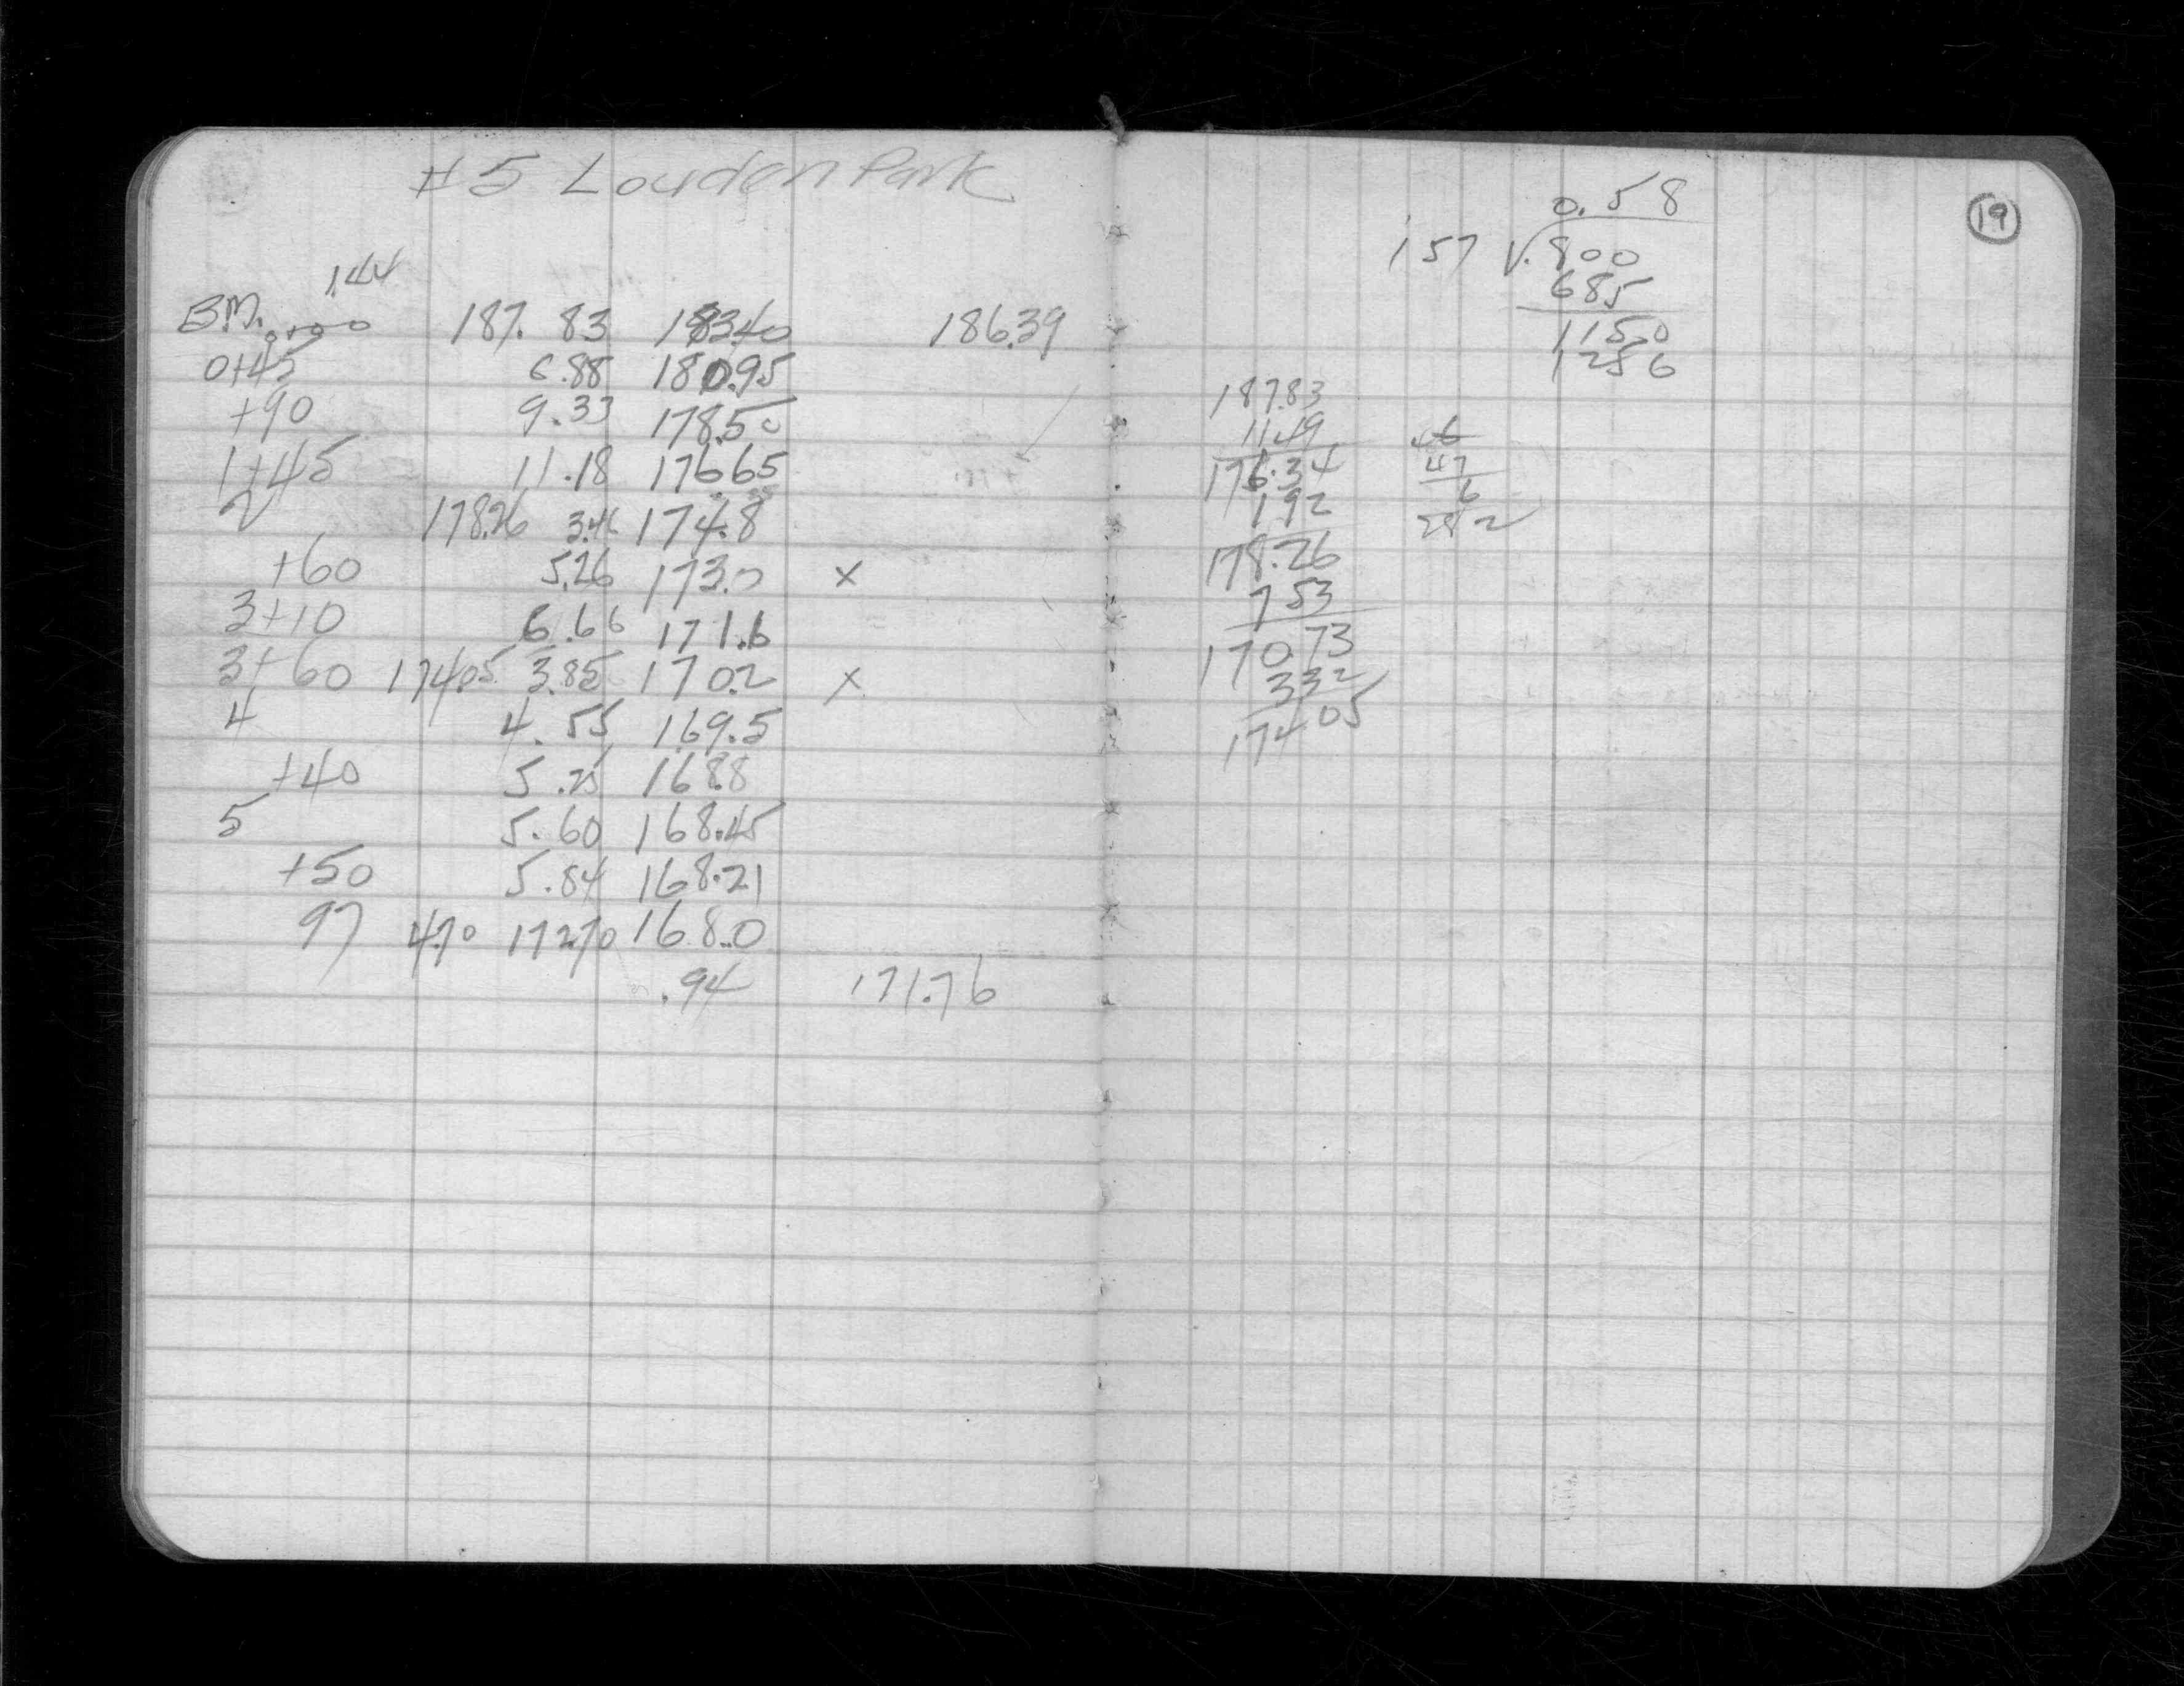 #5 Louden Park
1.44
BM. 0+00 187.83 183.40 186.39
0+45 6.88 180.95
+90 9.33 178.50
1+45 11.18 176.65
2 178.26 3.46 174.8
+60 5.26 173.0 x
3+10 6.66 171.6
3+60 174.05 3.85 170.2 x
4 4.55 169.5
+40 5.25 168.8
5 5.60 168.45
+50 5.84 168.21
97 4.70 172.70 168.0
.94 171.76
19
0.58
157 √.800
685
1150
1256
187.83
11.49
176.34
192
178.26
7 53
170.73
3 32
174 05
47
6
282